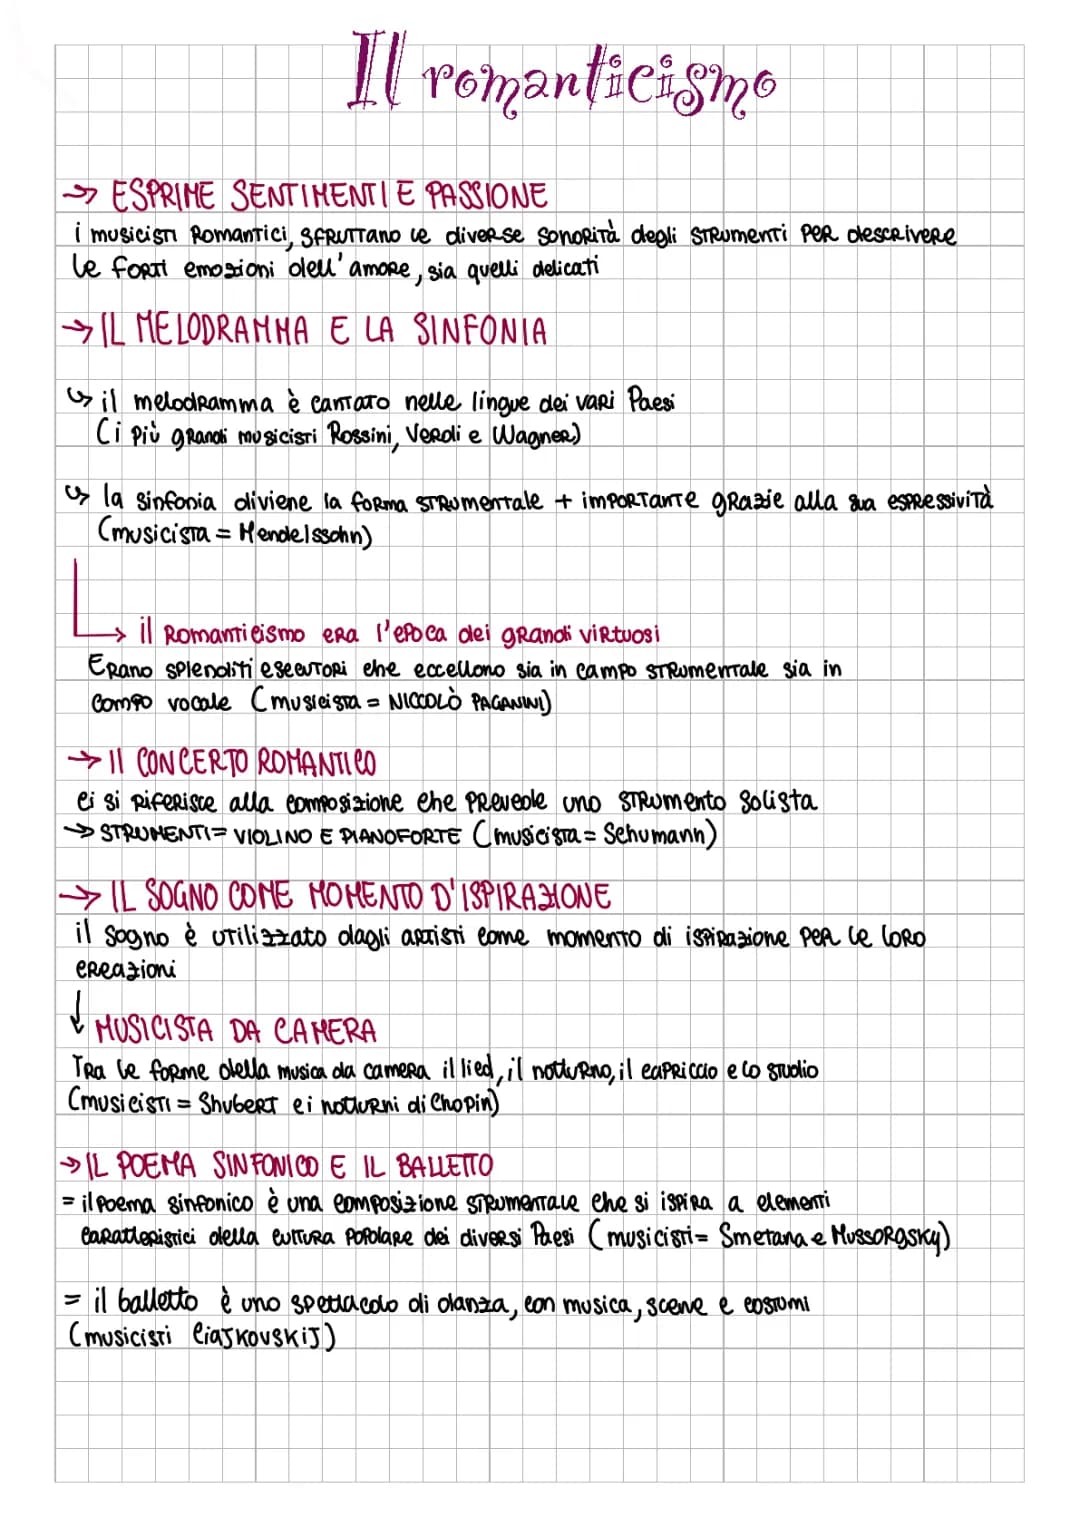 Il romanticismo
→ ESPRIME SENTIMENTI E PASSIONE
i musicisti Romantici, sfruttano le diverse sonorità degli strumenti per descrivere
le forti emozioni dell'amore, sia quelli delicati
→ IL MELODRAMMA E LA SINFONIA
↪ il melodramma è cantato nelle lingue dei vari Paesi
(i più grandi musicisti Rossini, Verdi e Wagner)
↪ la sinfonia diviene la forma strumentale + importante grazie alla sua espressività
(musicista = Mendelssohn)
→ il Romanticismo era l'epoca dei grandi virtuosi
Erano splenditi esecutori che eccellono sia in campo strumentale sia in
campo vocale (musicista = NICCOLÒ PAGANINI)
→ Il CONCERTO ROMANTICO
ci si riferisce alla composizione che prevede uno strumento solista
→ STRUMENTI = VIOLINO E PIANOFORTE (musicista = Schumann)
→ IL SOGNO COME MOMENTO D'ISPIRAZIONE
il sogno è utilizzato dagli artisti come momento di ispirazione per le loro
creazioni
↓ MUSICISTA DA CAMERA
Tra le forme della musica da camera il lied, il notturno, il capriccio e lo studio
(musicisti = Shubert e i notturni di Chopin)
→ IL POEMA SINFONICO E IL BALLETTO
= il poema sinfonico è una composizione strumentale che si ispira a elementi
caratteristici della cultura popolare dei diversi Paesi (musicisti = Smetana e Mussorgsky)
= il balletto è uno spettacolo di danza, con musica, scene e costumi
(musicisti Ciajkovskij)